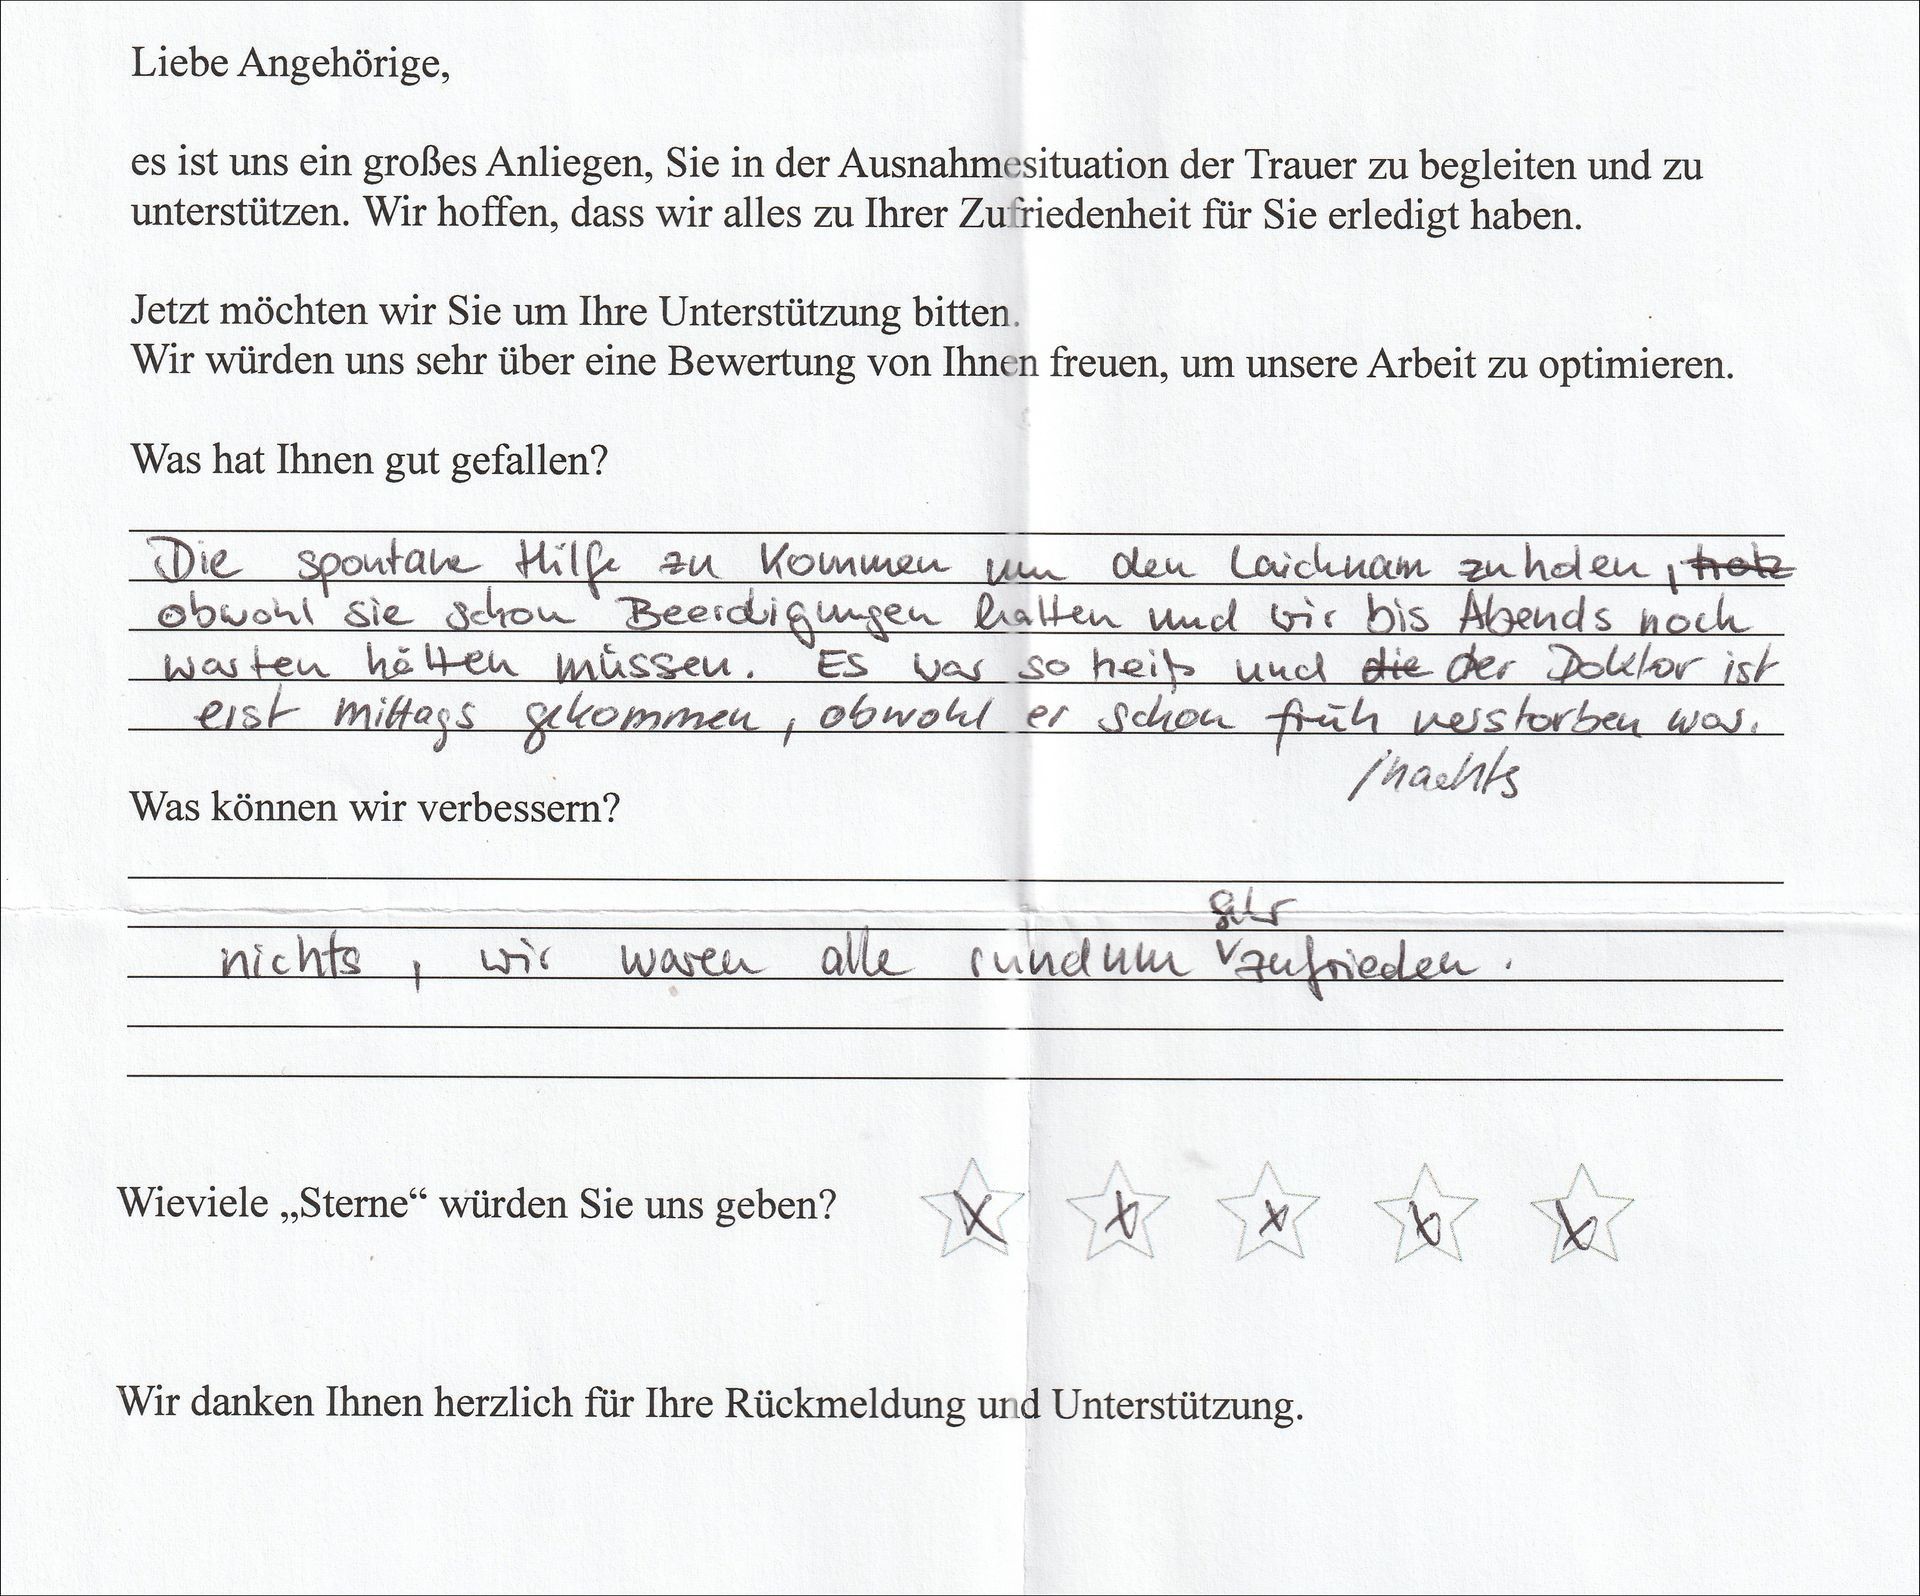 Liebe Angehörige,
es ist uns ein großes Anliegen, Sie in der Ausnahmesituation der Trauer zu begleiten und zu
unterstützen. Wir hoffen, dass wir alles zu Ihrer Zufriedenheit für Sie erledigt haben.
Jetzt möchten wir Sie um Ihre Unterstützung bitten.
Wir würden uns sehr über eine Bewertung von Ihnen freuen, um unsere Arbeit zu optimieren.
Was hat Ihnen gut gefallen?
Die spontane Hilfe zu kommen um den Laichnam zu holen, trotz
obwohl sie schon Beerdigungen hatten und wir bis Abends noch
warten hätten müssen. Es war so heiß und die der Doktor ist
erst mittags gekommen, obwohl er schon früh verstorben war.
/nachts
Was können wir verbessern?
sehr
nichts, wir waren alle rundum zufrieden.
Wieviele „Sterne“ würden Sie uns geben? x x x x x
Wir danken Ihnen herzlich für Ihre Rückmeldung und Unterstützung.